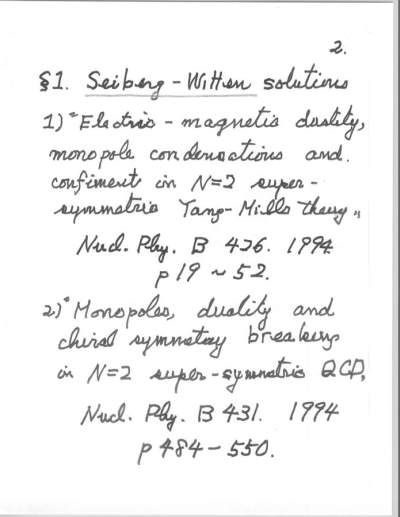 2.
§1. Seiberg - Witten solutions
1) "Electric - magnetic duality,
monopole condensactions and.
confiment in N=2 super-
symmetric Yang-Mills theory"
Nucl. Phy. B 426. 1994
p 19 ~ 52.
2) "Monopoles, duality and
chiral symmetry breaking
in N=2 super-symmetric QCD,
Nucl. Phy. B 431. 1994
p 484 - 550.